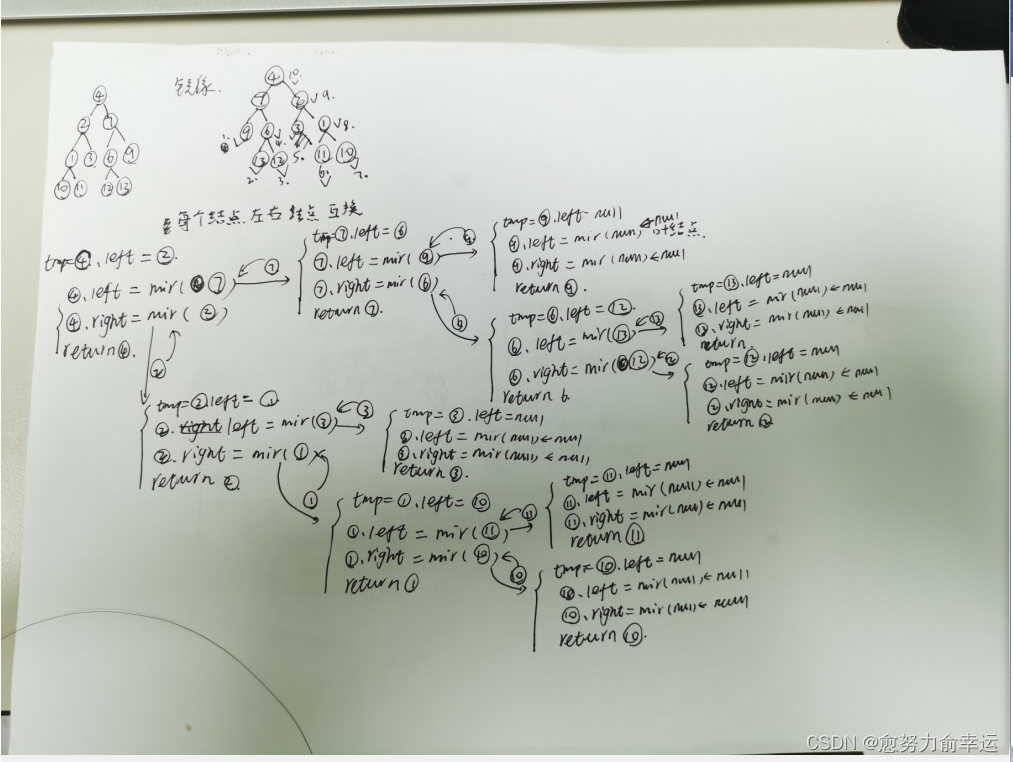 镜像.
④
② ⑦
① ③ ⑥ ⑨
⑩ ⑪ ⑫ ⑬
④ 10.
⑦ ② 9.
⑨ ⑥ ③ ① 8.
1. 4.
⑬ ⑫ 5. ⑪ ⑩
2. 3. 6. 7.
每个结点左右结点互换
tmp=④.left = ②.
④.left = mir(⑦) ⑦
④.right = mir(②)
return④.
②
tmp=⑦.left = ⑥
⑦.left = mir(⑨) ⑨
⑦.right = mir(⑥)
return⑦.
⑥
tmp=⑨.left= null
⑨.left = mir(null) ←null
叶结点.
⑨.right = mir(null) ←null
return⑨.
tmp=⑥.left = ⑫.
⑥.left = mir(⑬) ⑬
⑥.right = mir(⑫) ⑫
return 6.
tmp=⑬.left=null
⑬.left = mir(null) ←null
⑬.right = mir(null) ←null
return
tmp=⑫.left=null
⑫.left = mir(null) ←null
⑫.right = mir(null) ←null
return⑫
tmp=②.left= ①
②.left = mir(③) ③
②.right = mir(①)
return②.
①
tmp=③.left=null
③.left = mir(null)←null
③.right = mir(null) ←null
return③.
tmp=①.left= ⑩
①.left = mir(⑪) ⑪
①.right = mir(⑩) ⑩
return①
tmp=⑪.left=null
⑪.left = mir(null) ←null
⑪.right = mir(null) ←null
return⑪
tmp=⑩.left=null
⑩.left = mir(null) ←null
⑩.right = mir(null) ←null
return⑩.
CSDN @愈努力俞幸运